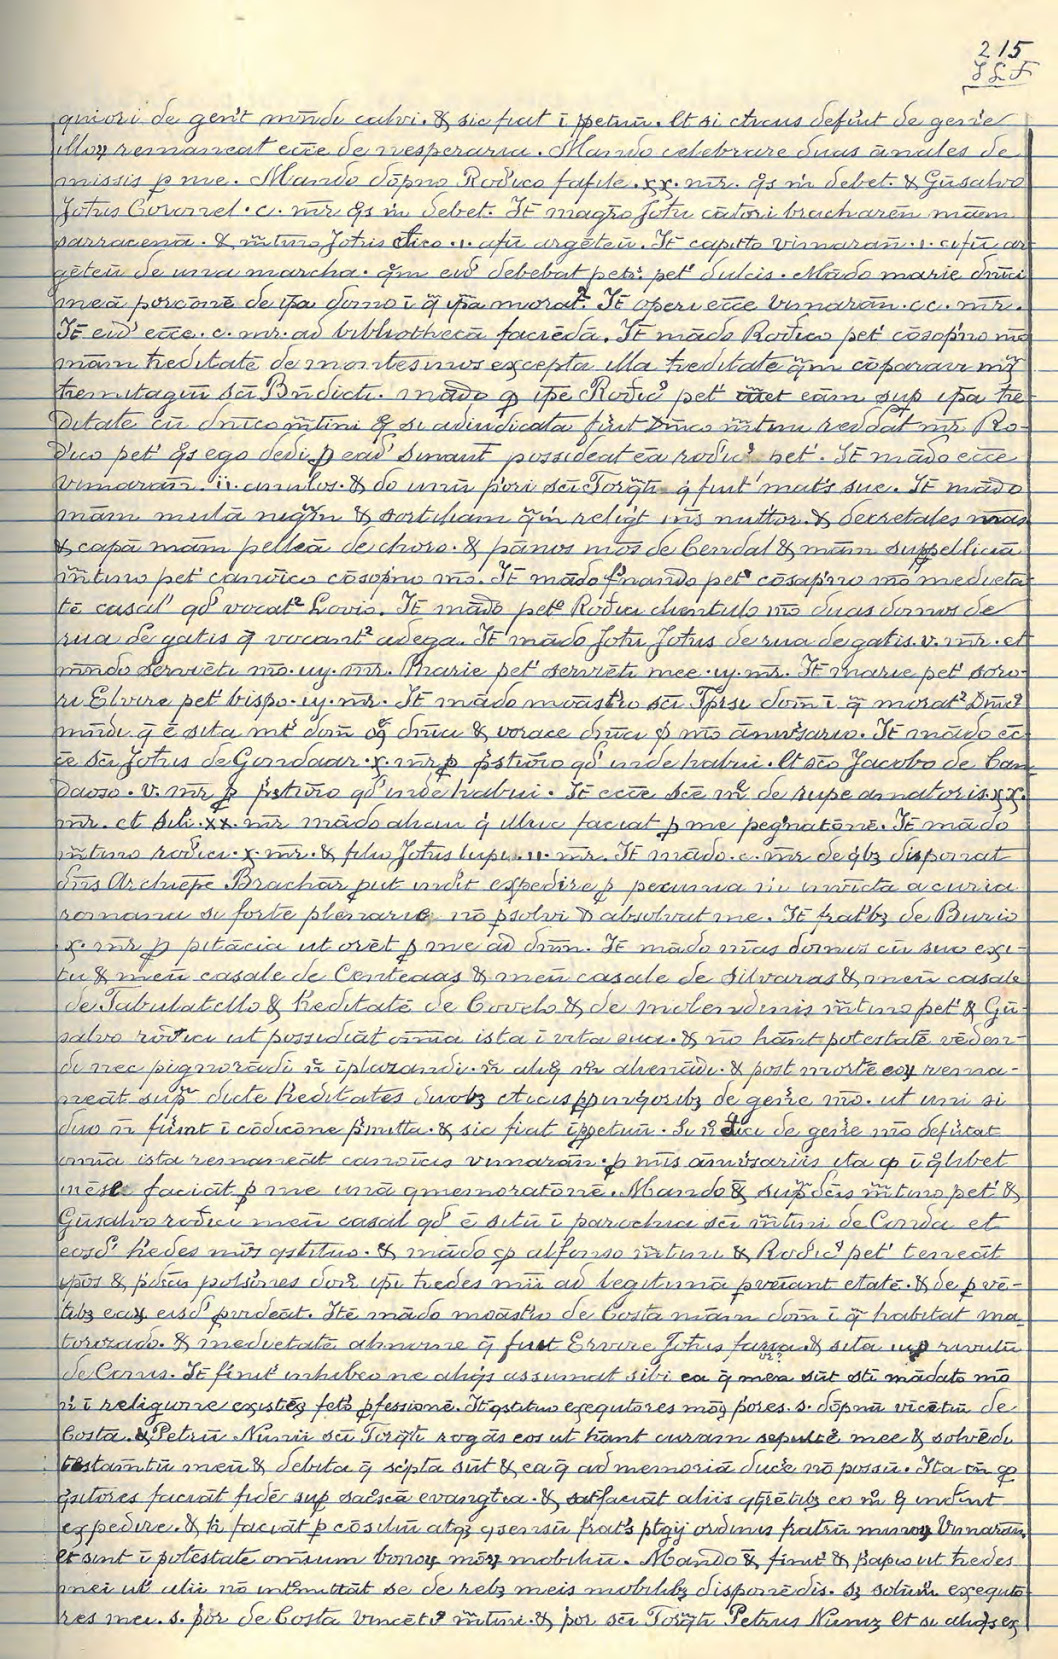 215
quiori de gen̄t mēndi calvi. & sic fiat ī ꝑpetuū. Et si cl̄icus defūit de gen̄e
illoꝝ remaneat ecc̄e de vesperaria. Mando celebrare duas ānales de
missis ꝑ me. Mando dōpno Rod̄ico fafile .xx. mr̄. q̄s m̄ debet. & Gūsalvo
Joh̄is Coronel .c. mr̄ q̄s m̄ debet. It̄ magr̄o Joh̄i cātori bracharēn mām
sarracenā. & m̄tino Joh̄is cl̄ico .i. cifū argēteū. It̄ capit̄lo vimarān .i. cifū ar
gēteū de una marcha. q̄m eid̄ debebat petr̄ pet' dulcis. Mādo marie dn̄ici
meā porcōnē de ip̄a domo ī q̄ ip̄a morat̄. It̄ operi ecc̄e vimarān .cc. mr̄.
It̄ eid̄ ecc̄e .c. mr̄. ad bibliothecā faciēdā. It̄ mādo Rod̄ico pet' cōsop'no mō
mām h̄editatē de montesinos excepta illa h̄editate q̄m cōparavi
h̄emitagiū sc̄i Bn̄dicti. mādo q̄ ip̄e Rod̄ic' pet' eām sup ip̄a h̄e
ditatē cū dn̄ico m̄tini & si adiudicata fūit dn̄ico m̄tini reddat mr̄ Ro-
d̄ico pet' q̄s ego dedi ꝑ ead̄ sinaut̄ possideat eā rod̄ic' pet'. It̄ mādo ecc̄e
vimarān .ii. anulos. & do unū p'ori sc̄i Torq̄ti q̄ fuit mat̄s sue. It̄ mādo
mām mulā nigrā & sortiliam & decretales mās
& capā mām pelleā de choro. & pānos mōs de Cendal & mām suppelliciā
m̄tino pet' canoīco cōsop'no mō. It̄ mādo f'nando pet' cōsap'no mō medieta
tē casal' qd̄ vocat̄ Lovio. It̄ mādo pet' Rod̄ici clientulo mō duas domos de
rua de gatis q̄ vocant̄ adega. It̄ mādo Joh̄i Joh̄is de rua de gatis .v. mr̄. et
mēndo serviēti mō .iij. mr̄. Marie pet' serviēti mee .iij. mr̄. It̄ marie pet' soro-
ri Elvire pet' bispo .iij. mr̄. It̄ mādo monast̄io sc̄i Tp̄rsi dom̄ ī q̄ morat̄ Dn̄ic'
mēndi q̄ ē sita int̄ dom̄ dn̄ici & vorace dn̄ici ꝑ mō ānivsario. It̄ mādo ec
c̄e sc̄i Joh̄is de Gondaar .x. mr̄ ꝑ p̄stimōio qd̄ inde habui. Et sc̄o Jacobo de Can
daoso .v. mr̄ ꝑ p̄stimōio qd̄ inde habui. It̄ ecc̄e sc̄e m̄ de rupe amatoris .xx.
mr̄. et sibi .xx. mr̄ mādo alicui q̄ illuc faciat ꝑ me peḡnatōnē. It̄ mādo
m̄tino rod̄ici .x. mr̄. & filio Joh̄is lupi .ii. mr̄. It̄ mādo .c. mr̄ de q̄bꝫ disponat
dn̄s Archiep̄e Brachar̄ put vid̄it expedire ꝑ pecunia a curia
romana si forte plenarie nō ꝑsolvi & absolvat me. It̄ frat̄bꝫ de Burio
.x. mr̄ ꝑ pitācia ut orēt ꝑ me ad dn̄m. It̄ mādo mās domos cū suo exi-
tu & meū casale de Centeaas & meū casale de silvaras & meū casale
de Tabulatello & h̄editatē de Covelo & de molendinis m̄tino pet' & Gū-
salvo rod̄ici ut possideāt om̄ia ista ī vita sua. & nō hān̄t potestatē vēden-
di nec pignorādi n̄ īplazandi n̄ aliq̄ m̄ alienādi. & post mortē eoꝝ rema-
neāt sup̄ dicte h̄editates duobꝫ cl̄icis ꝓpinq̄oribꝫ de gen̄e mō. ut uni si
duo n̄ fūint ī cōdicōne p̄mitta. & sic fiat īꝑpetuū. Si n̄ cl̄ici de gen̄e mō defūint
om̄ia ista remaneāt canoīcis vimarān ꝑ mīs ānivsariis ita q̄ ī q̄libet
mēse faciāt ꝑ me unā ɋmemoratōnē. Mando & sup̄ dc̄is m̄tino pet' &
Gūsalvo rod̄ici meū casal qd̄ ē sitū ī parochia sc̄i m̄tini de Conda et
eosd̄ h̄edes mōs ɋstituo. & mādo q̄ alfonso m̄tini & Rod̄ic' pet' teneāt
ip̄os & p̄dc̄as possiones donc̄ ip̄i h̄edes mīi ad legitimā ꝑveniant etatē. & de ꝓvē-
tibꝫ eaꝝ eisd̄ ꝓvideāt. Itē mādo moāst̄io de Costa mām dom̄ ī q̄ habitat ma
torozado. & medietatē almunie q̄ fuit Ervire Joh̄is farza & sita iuꝑ rivulū
de Conus. It̄ finit' inhibeo ne aliq̄s assumat sibi ea q̄ mea sūt st̄i mādato mō
n̄ ī religione existēs fet' ꝓfessione. It̄ ɋstituo exequtores mōs p'ores. s. dōpnū vicētiū de
Costa. & Petrū Nunii sc̄i Torq̄ti rogās eos ut hān̄t curam sepultē mee & solvēdi
testam̄tū meū & debita q̄ sc̄pta sūt & ea q̄ ad memoriā duc̄e nō possū. Ita tm̄ q̄
q̄sitores faciāt fidē sup sac̄sc̄ā evanḡlia. & satfaciāt aliis
expedire. & h̄ faciāt ꝑ cōsiliū atqꝫ ɋsensū frat̄s ordinis fratrū minoꝝ Vimarān.
et sint ī potestate om̄ium bonoꝝ mōꝝ mobiliū. Mando & finit' & p̄apio ut h̄edes
mei ut alii nō int̄mittāt se de rebꝫ meis mobilibꝫ disponēdis. sꝫ solūm̄ exequto
res mei. s. p'or de Costa vincēti' m̄tini. & p'or sc̄i Torq̄ti Petrus Nuniz Et si aliq̄s ex